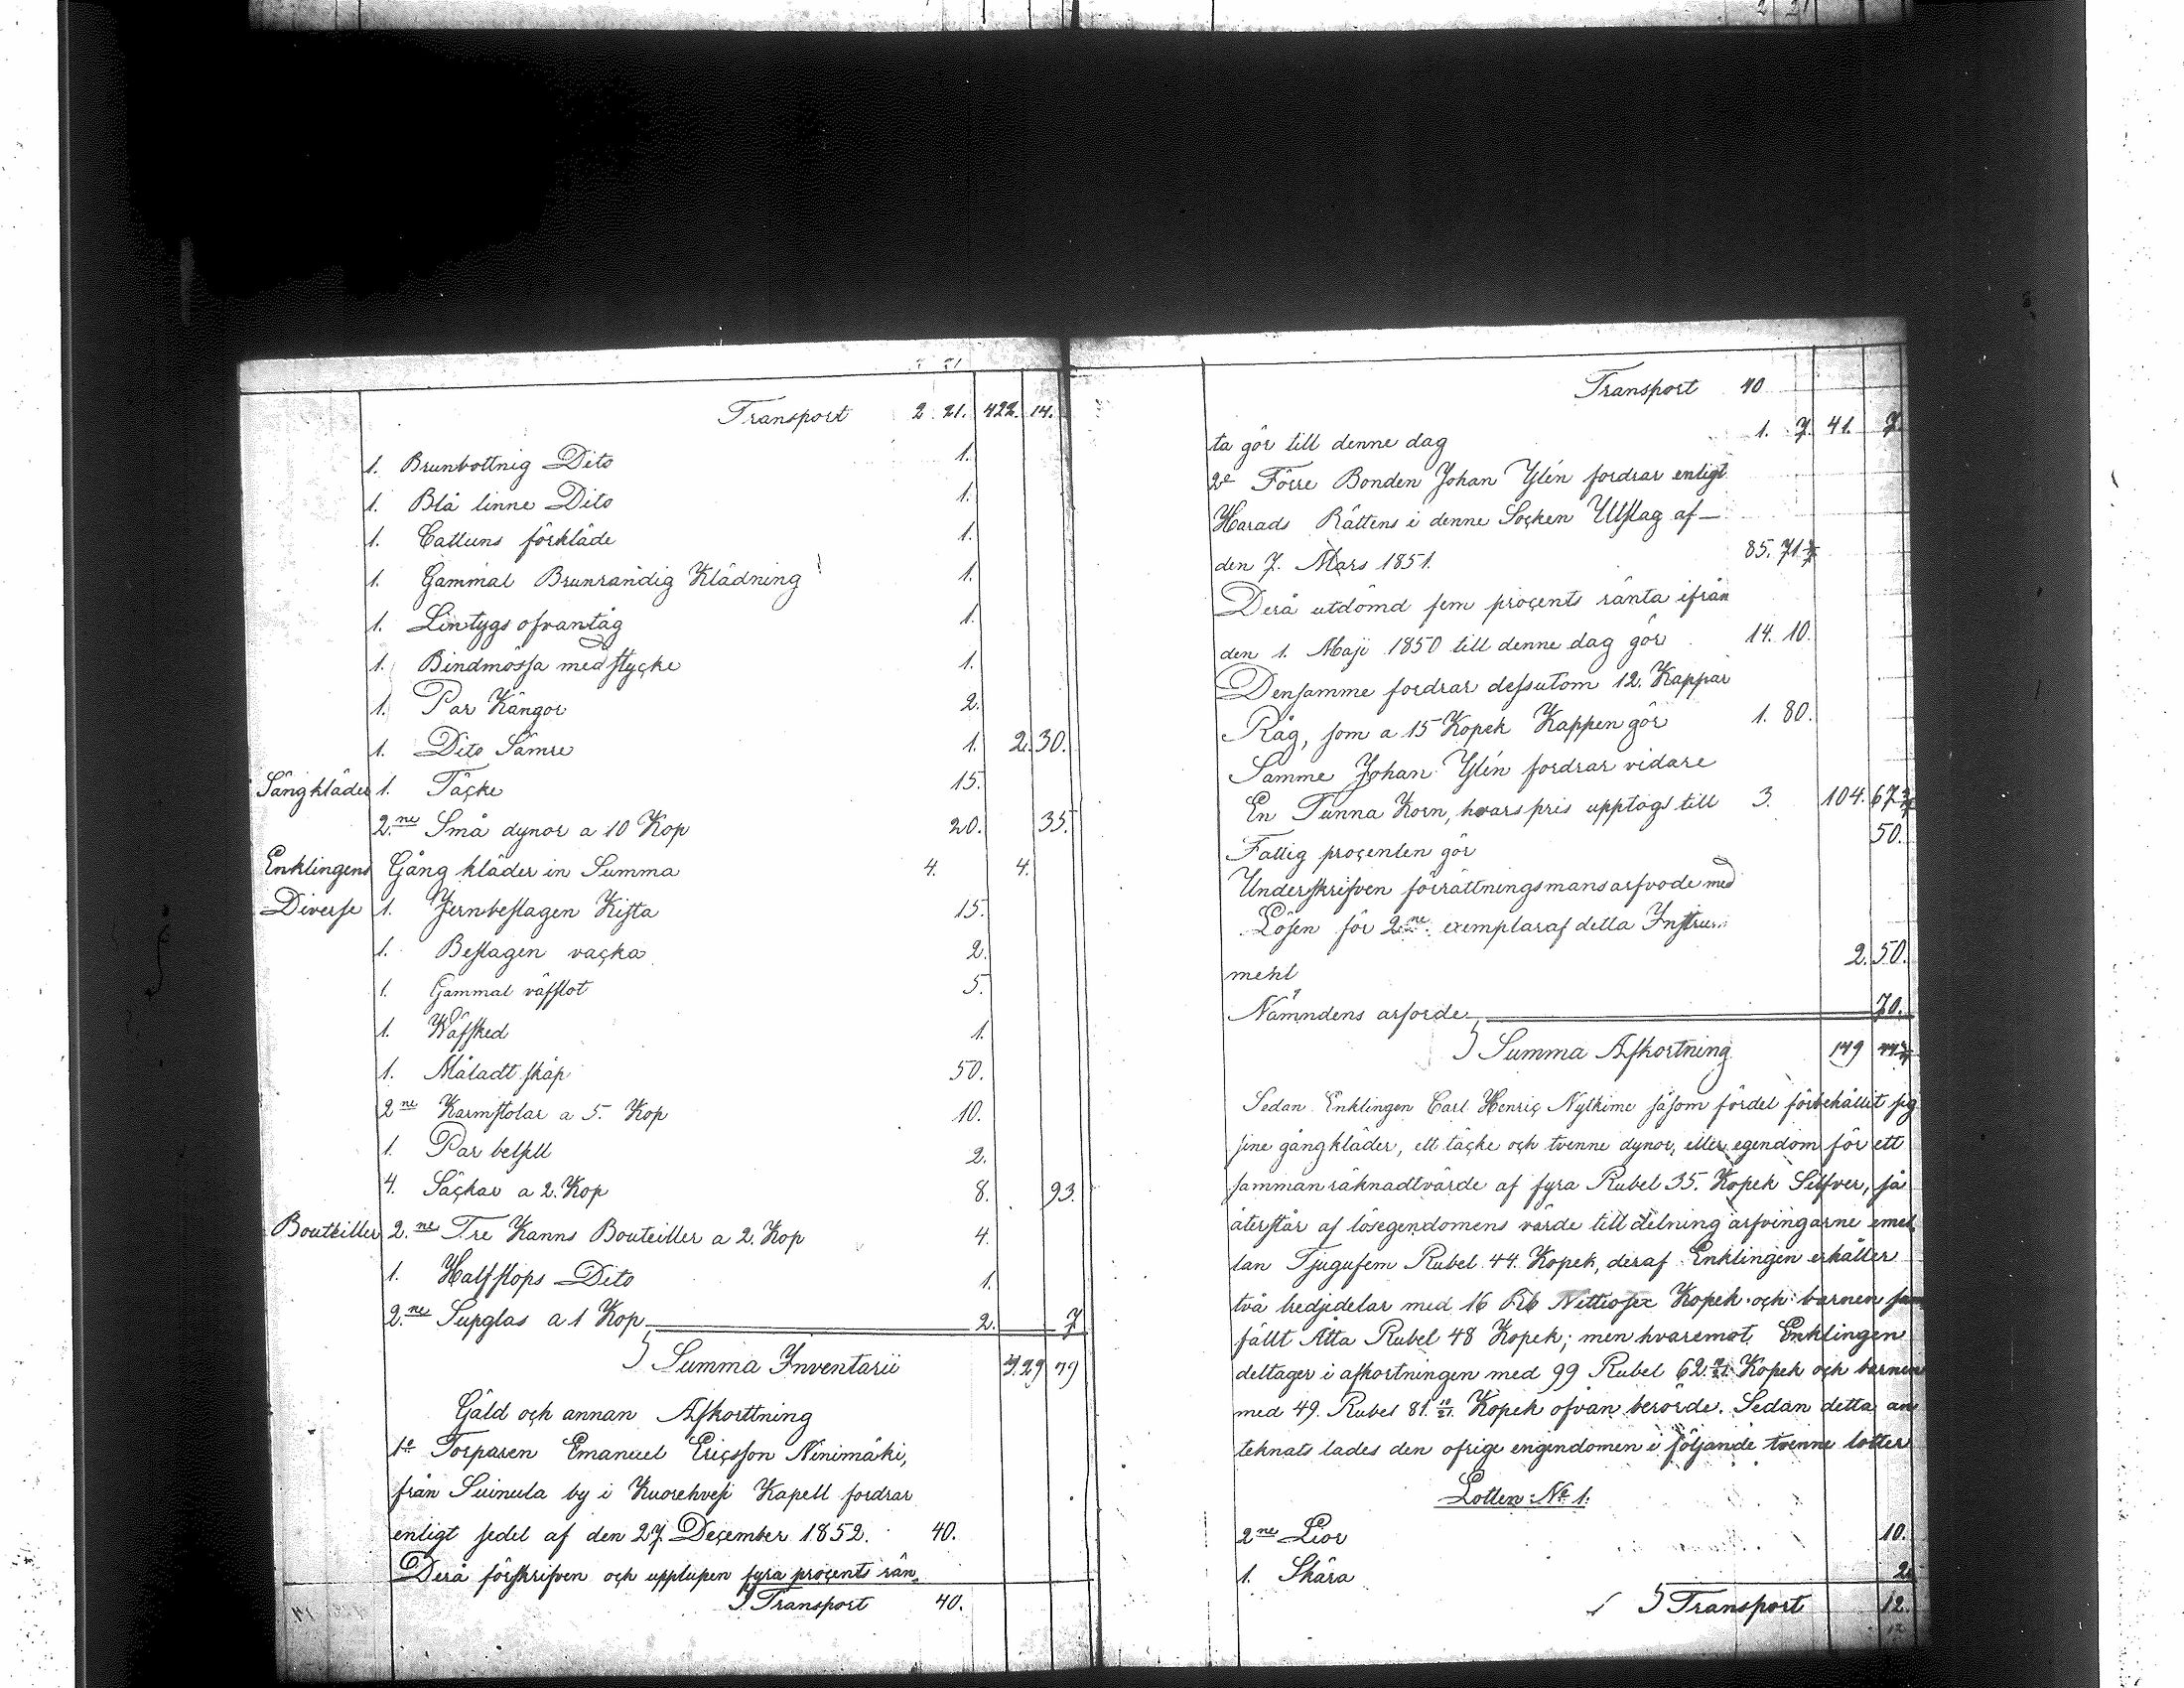 Transport 2. 21. 422. 14.
1. Brunbottnig Dito 1.
1. Blå linne Dito 1.
1. Cattuns förkläde 1.
1. Gammal Brunrandig Klädning 1.
1. Lintygs ofvantåg 1.
1. Bindmössa med stycke 1.
1. Par Kängor 2.
1. Dito Sämre 1. 2. 30.
Sängkläder 1. Täcke 15.
2.ne Små dynor a 10 Kop 20. 35.
Enklingens Gång kläder in Summa 4. 4.
Diverse 1. Jernbeslagen Kista 15.
1. Beslagen vacka 2.
1. Gammal väfstot 5.
1. Wäfsked 1.
1. Måladt skåp 50.
2ne Karmstolar a 5. Kop 10.
1. Par betsell 2.
4. Säckar a 2. Kop 8. 93.
Bouteiller 2.ne Tre Kanns Bouteiller a 2. Kop 4.
1. Halfstops Dito 1.
2.ne Supglas a 1 Kop 2. 7
Summa Inventarii 429 79
Gäld och annan Afkorttning
1o Torparen Emanuel Ericsson Ninimäki,
från Suinula by i Kuorehvesi Kapell fordrar
enligt sedel af den 27. December 1852. 40.
Derå förskrifven och upplupen fyra procents rän-
Transport 40.
Transport 40
ta gör till denne dag 1. 7. 41. 7.
2o Förre Bonden Johan Ylén fordrar enligt
Harads Rättens i denne Socken Utslag af
den 7. Mars 1851. 85. 71
Derå utdömd fem procents ränta ifrån
den 1. Maji 1850 till denne dag gör 14. 10.
Densamme fordrar dessutom 12. Kappar
Råg, som a 15 Kopek Kappen gör 1. 80.
Samme Johan Ylén fordrar vidare
En Tunna Korn, hvars pris upptogs till 3. 104. 67
Fattig procenten gör 50.
Underskrifven förrättningsmans arfvode med
Lösen för 2ne. exemplar af detta Instru-
ment 2. 50.
Nämndens arforde 70.
Summa Afkortning 149
Sedan Enklingen Carl Henric Nylkime såsom fördel förbehållit sig
sine gångkläder, ett täcke och tvenne dynor, eller egendom för ett
sammanräknadt värde af fyra Rubel 35. Kopek Silfver, så
återstår af lösegendomens värde till delning arfvingarne emel-
lan Tjugufem Rubel 44. Kopek, deraf Enklingen erhåller
två tredjedelar med 16 Rb Nittiosex Kopek och barnen sam
fällt Åtta Rubel 48 Kopek; men hvaremot Enklingen
deltager i afkortningen med 99 Rubel 62. Kopek och barnen
med 49. Rubel 81. 10/21. Kopek ofvan berörde. Sedan detta an
teknats lades den öfrige engindomen i följande tvenne lotter
Lotten No 1:
2ne Lior 10.
1. Skära 2.
Transport 12.